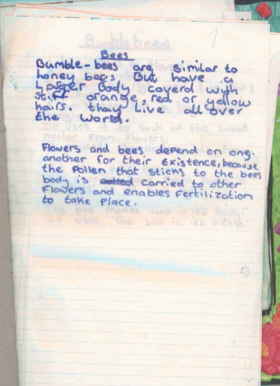 Bees
Bumble-bees are similar to
honey bees. But have a
larger body coverd with
stiff orange, red or yellow
hairs. thay live all over
the world.
Flowers and bees depend on one
another for their existence, because
the Pollen that sticks to the bees
body is carried to other
Flowers and enables Fertilization
to take place.